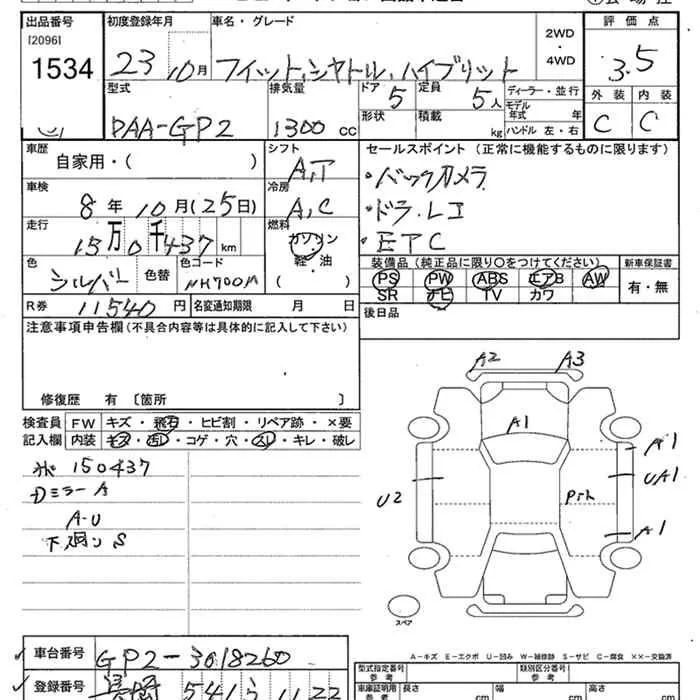 出品番号 初度登録年月 車名・グレード 2WD・4WD 評価点
[2096]
1534 23 10月 フィットシャトル、ハイブリット 3.5
型式 排気量 ドア 5 定員 5人 ディーラー・並行 外装 内装
DAA-GP2 1300 cc 形状 積載 kg モデル年式 年 C C
ハンドル 左・右
車歴 自家用・( ) シフト A,T セールスポイント (正常に機能するものに限ります)
車検 8年 10月(25日) 冷房 A,C ・バックカメラ
・ドラ.レコ
走行 15万0千437km 燃料 ガソリン 軽・油 ( ) ・ETC
色 シルバー 色替 色コード NH700M 装備品 (純正品に限り○をつけてください) 新車保証書
PS PW ABS エアB AW 有・無
SR ナビ TV カワ
R券 11540円 名変通知期限 月 日 後日品
注意事項申告欄 (不具合内容等は具体的に記入して下さい)
修復歴 有 〔箇所 〕
検査員 FW キズ・飛石・ヒビ割・リペア跡・×要
記入欄 内装 キズ・汚レ・コゲ・穴・スレ・キレ・破レ
150437
Dミラー A
A-U
下廻り S
A2 A3
A1
A1
U2 UA1
A1
スペア
A-キズ E-エクボ U-凹み W-補修跡 S-サビ C-腐食 ××-交換済
車台番号 GP2-3018260 型式指定番号 類別区分番号
参考 参考
登録番号 541 ら 11-22 車庫証明用 参考 長さ cm 幅 cm 高さ cm